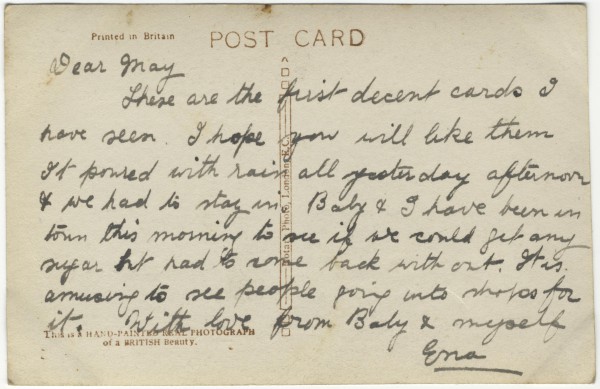 Printed in Britain
POST CARD
Dear May
These are the first decent cards I
have seen. I hope you will like them
It poured with rain all yesterday afternoon
& we had to stay in. Baby & I have been in
town this morning to see if we could get any
sugar but had to come back with out. It is
amusing to see people going into shops for
it. With love from Baby & myself
Ena
Rotary Photo, London, E.C.
THIS IS A HAND-PAINTED REAL PHOTOGRAPH
of a BRITISH Beauty.